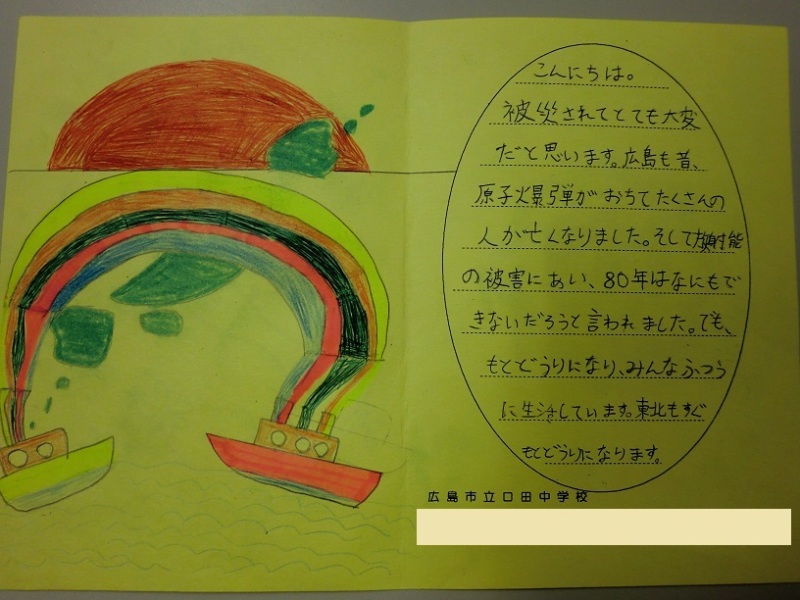 こんにちは。
被災されてとても大変
だと思います。広島も昔、
原子爆弾がおちてたくさんの
人が亡くなりました。そして放射能
の被害にあい、80年はなにもで
きないだろうと言われました。でも、
もとどうりになり、みんなふつう
に生活しています。東北もすぐ
もとどうりになります。
広島市立口田中学校